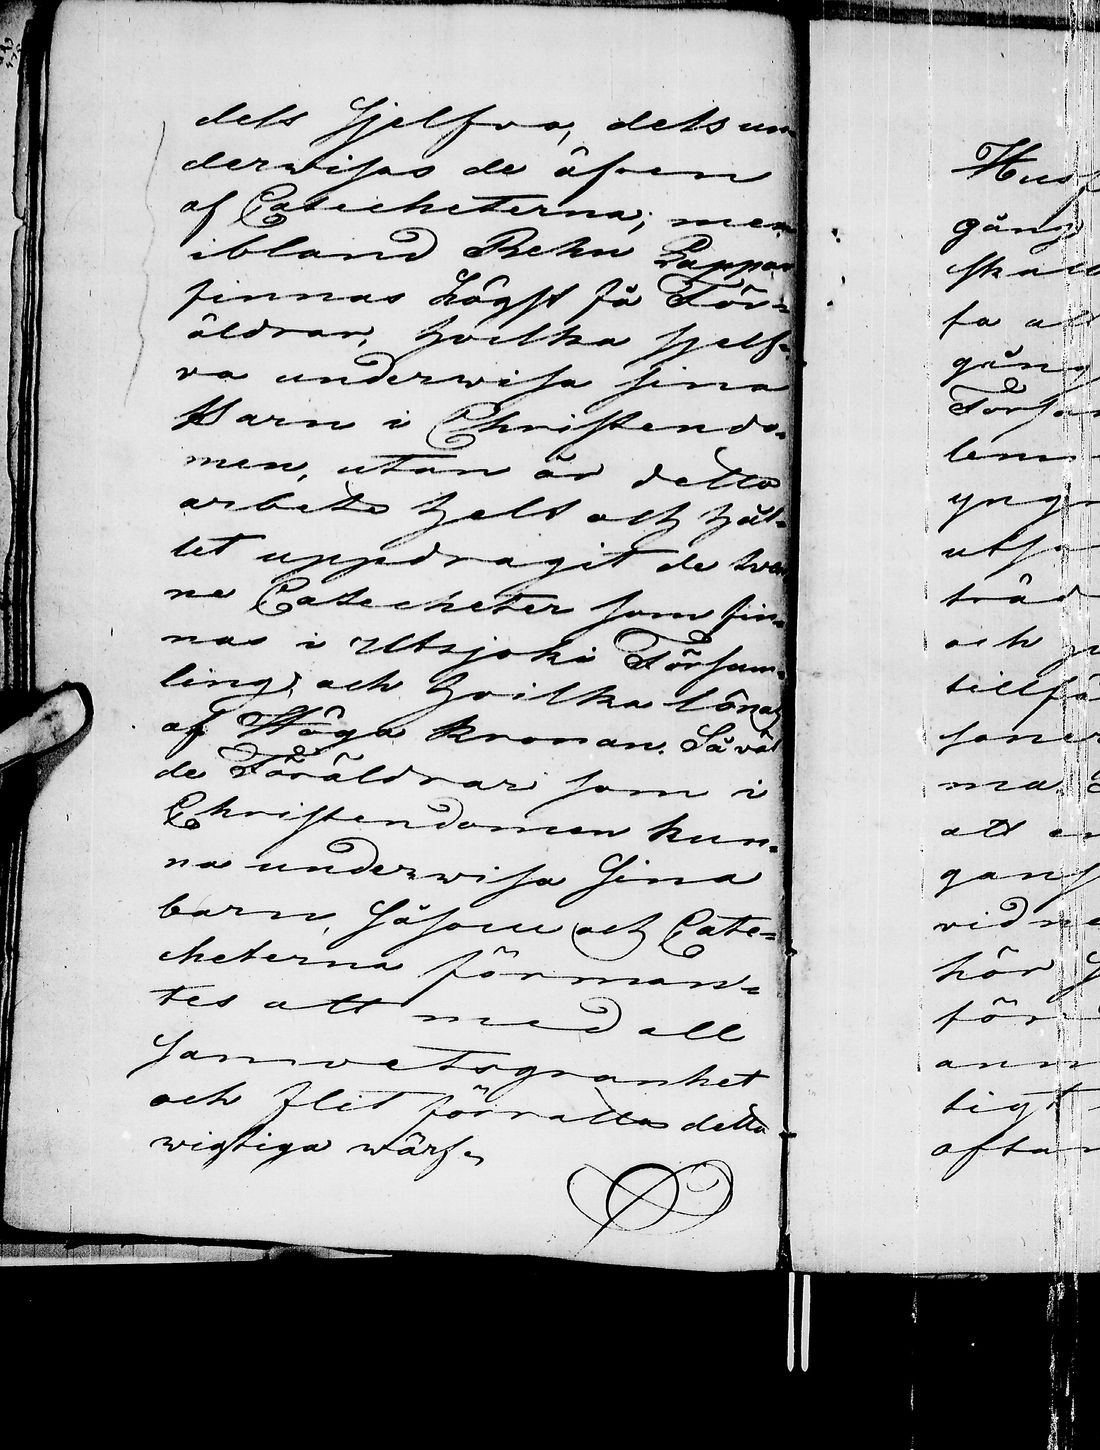 dels sjelfva, dels un
derwisas de äfven
af Catecheterna; men
ibland Rehn Lappar
finnas högst få För-
äldrar, hvilka sjelf-
va underwisa sina
Barn i Christendo-
men, utan är detta
arbete helt och hål-
let uppdragit de twän
ne Catecheter som fin-
nas i Utsjoki Försam-
ling, och hvilka lönas
af Höga Kronan. Såväl
de Föräldrar som i
Christendomen kun-
na underwisa sina
barn, såsom och Cate-
cheterna förman-
tes att med all
samvetsgranhet
och flit förrätta detta
wigtiga wärf.
Husf
gång
skall
ta all
gång
Försam
lem
yngr
utse
träd
och
tillfä
soner
ma
att en
gans
vidne
hör
för
ann
ligt
oftan